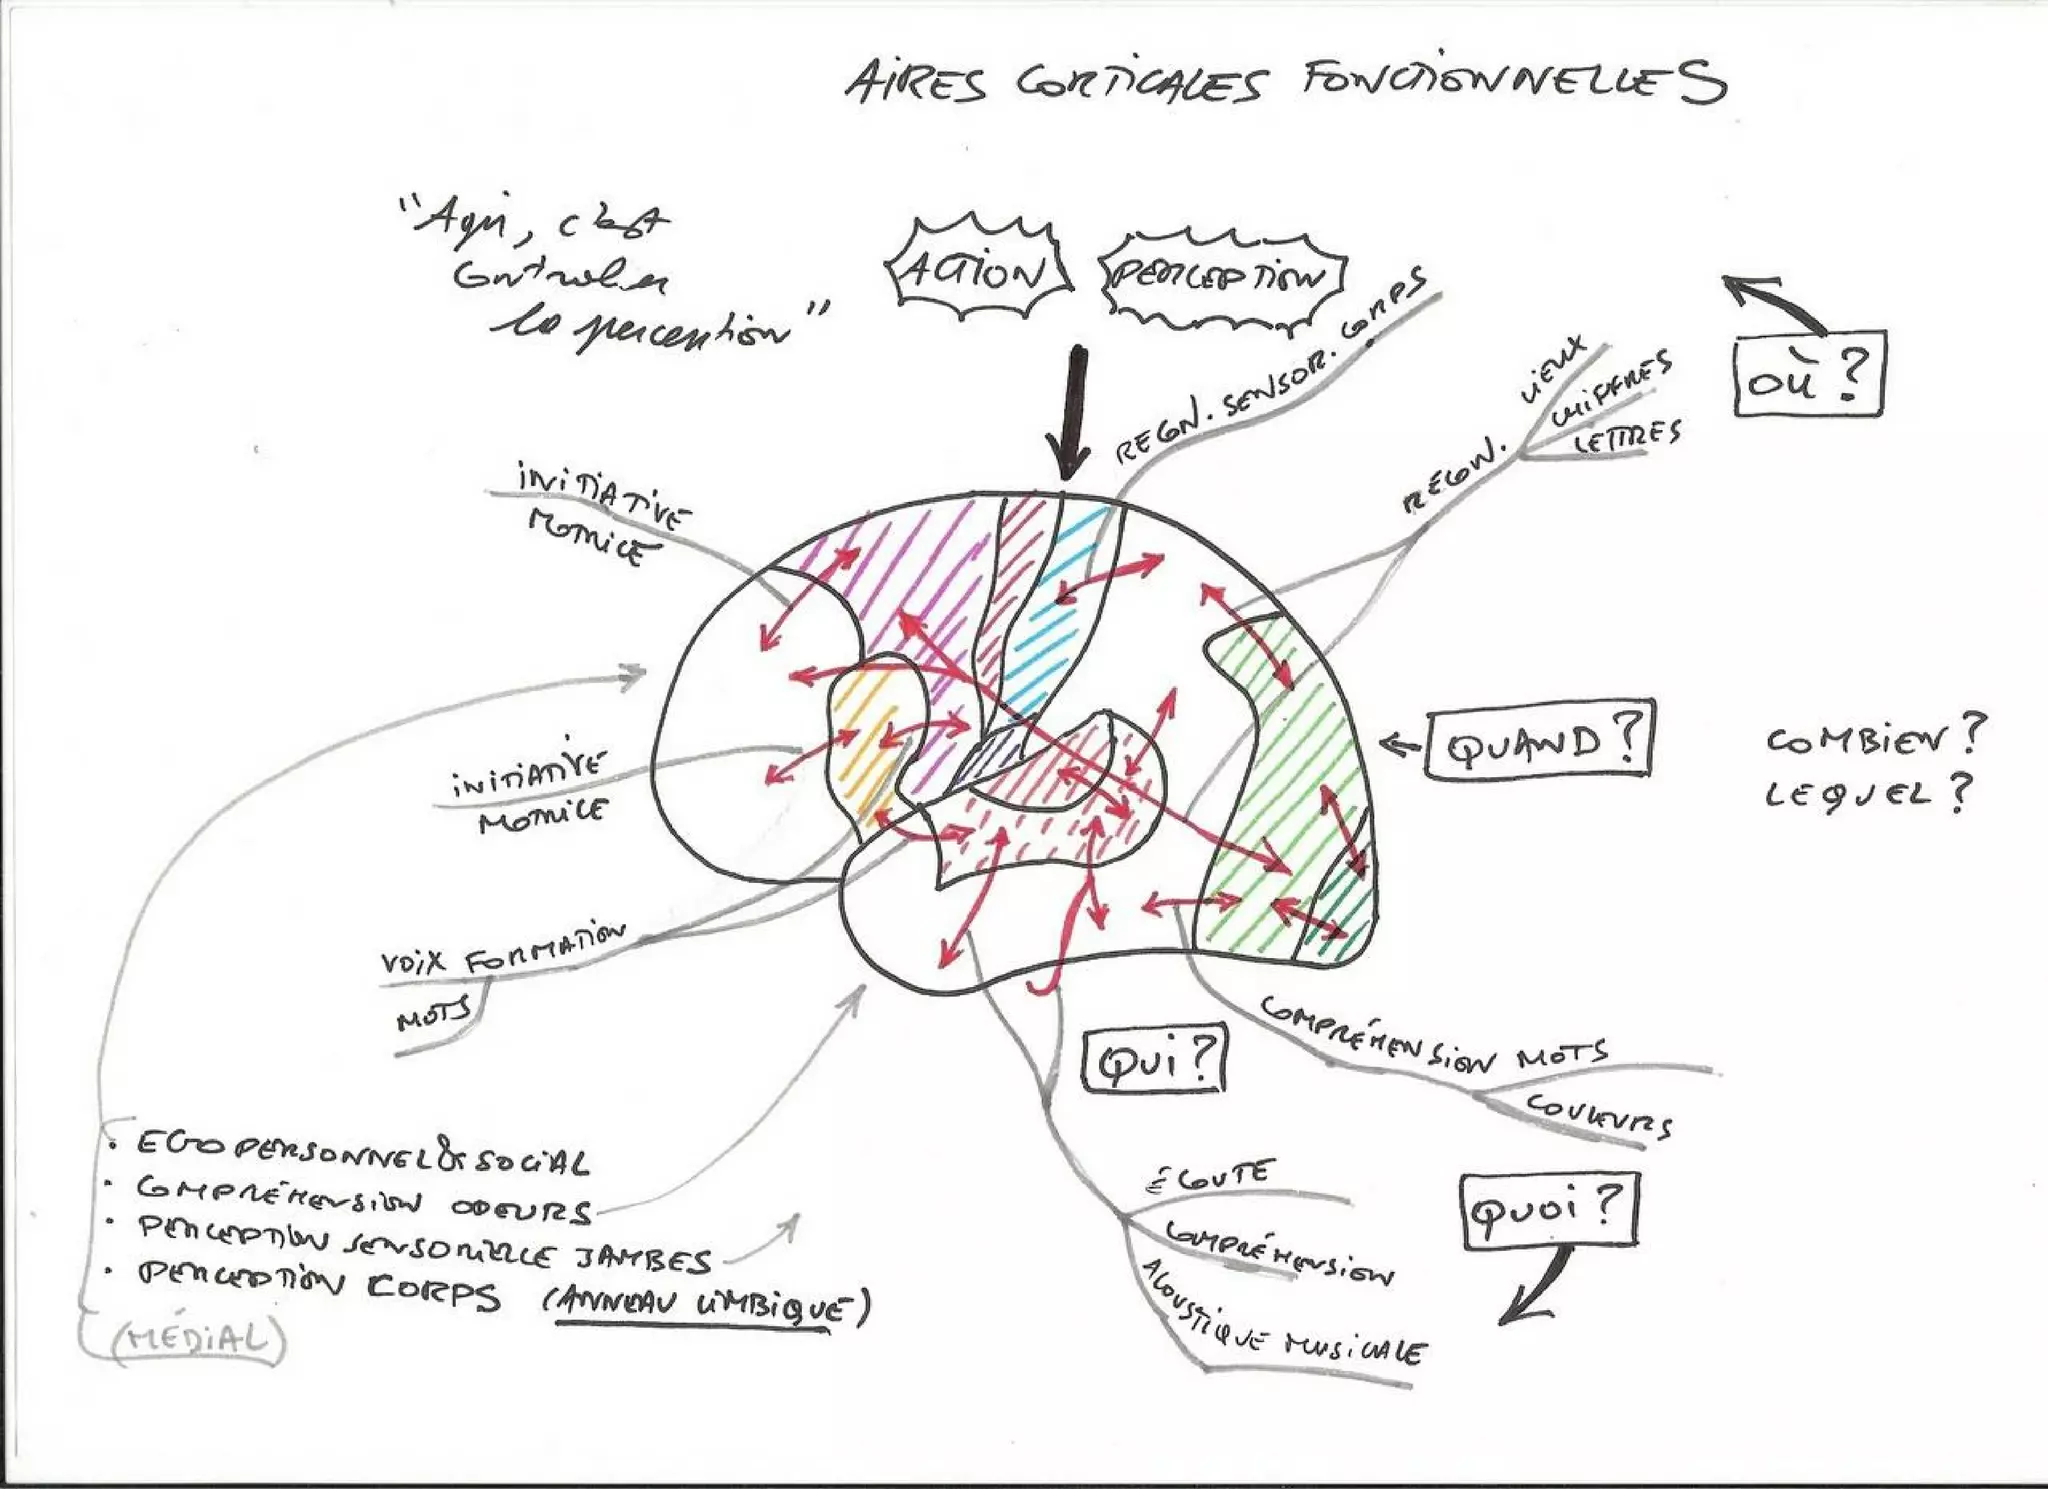 AIRES CORTICALES FONCTIONNELLES
"Agir, c'est
Contrôler
la perception"
ACTION
PERCEPTION
RECON. SENSOR. CORPS
OÙ?
LIEUX
CHIFFRES
LETTRES
RECON.
INITIATIVE
MOTRICE
QUAND?
COMBIEN?
LEQUEL?
INITIATIVE
MOTRICE
VOIX FORMATION
MOTS
QUI?
COMPRÉHENSION MOTS
COULEURS
QUOI?
ÉCOUTE
COMPRÉHENSION
ACOUSTIQUE MUSICALE
• EGO PERSONNEL & SOCIAL
• COMPRÉHENSION ODEURS
• PERCEPTION SENSORIELLE JAMBES
• PERCEPTION CORPS (ANNEAU LIMBIQUE)
(MÉDIAL)